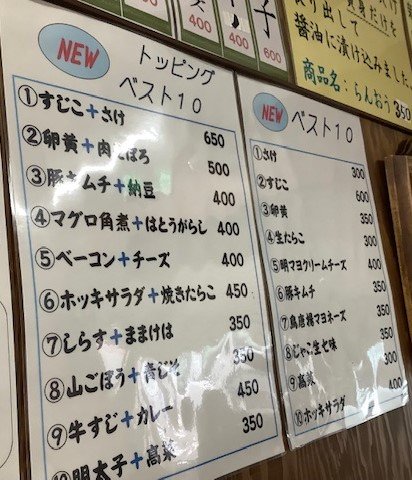 400
400
600
醤油に漬け込みました
商品名:らんおう 350
NEW
トッピング
ベスト10
①すじこ+さけ 650
②卵黄+肉そぼろ 500
③豚キムチ+納豆 400
④マグロ角煮+はとうがらし 400
⑤ベーコン+チーズ 400
⑥ホッキサラダ+焼きたらこ 450
⑦しらす+ままけは 350
⑧山ごぼう+青じそ 350
⑨牛すじ+カレー 450
⑩明太子+高菜 350
NEW
ベスト10
①さけ 300
②すじこ 600
③卵黄 300
④生たらこ 400
⑤明マヨクリームチーズ 400
⑥豚キムチ 350
⑦鳥唐揚マヨネーズ 350
⑧じゃこ生七味 350
⑨高菜 300
⑩ホッキサラダ 350